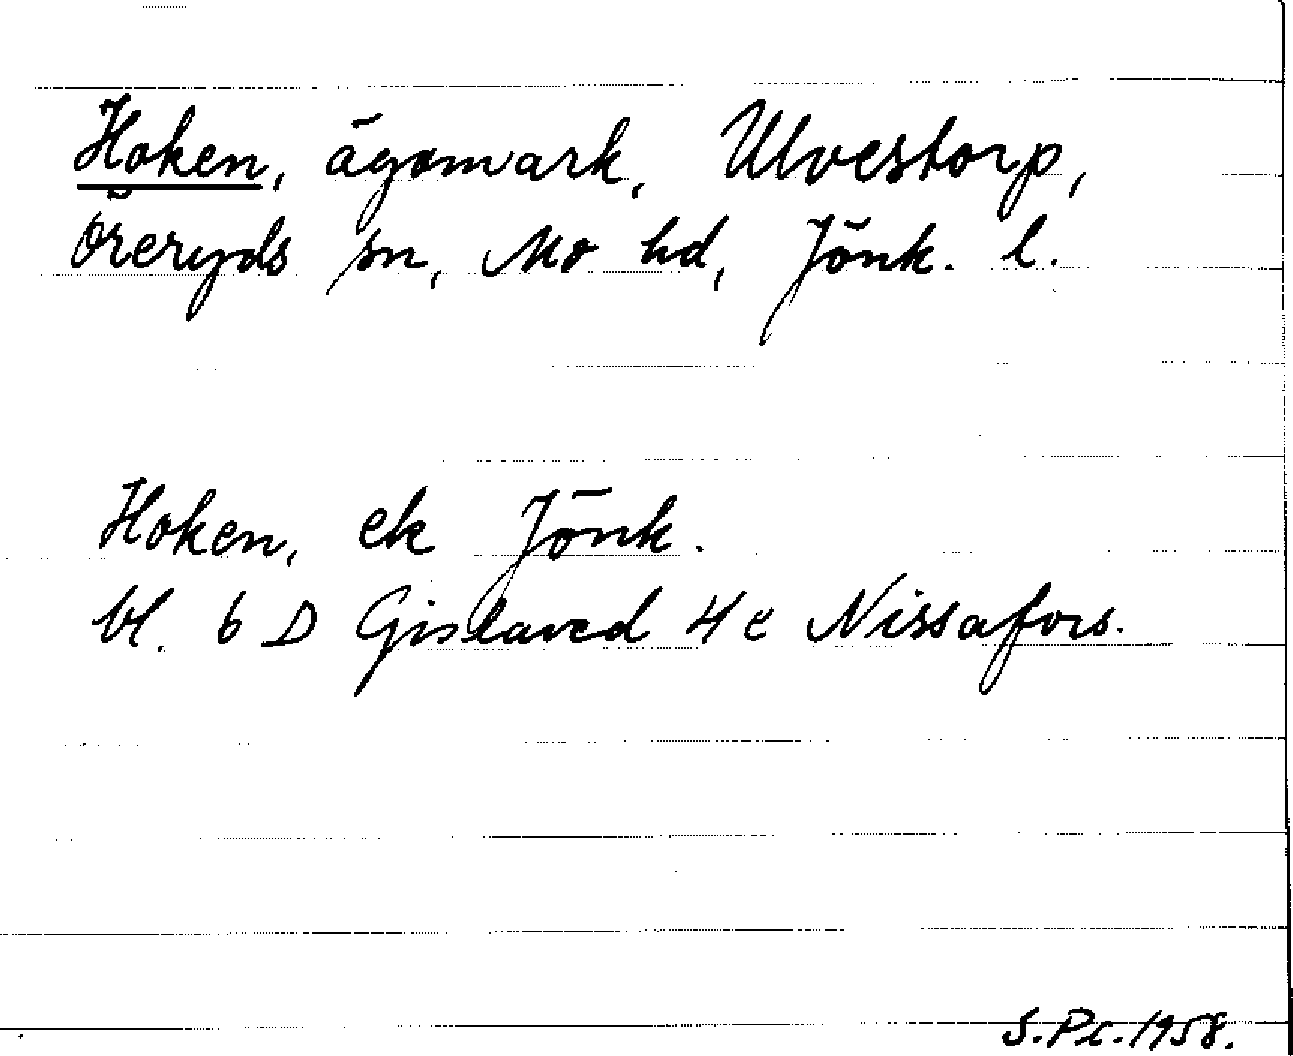 Hoken, ägomark, Ulvestorp,
Öreryds sn, Mo hd, Jönk. l.
Hoken, ek Jönk.
bl. 6 D Gislaved 4 e Nissafors.
S.Pc.1958.